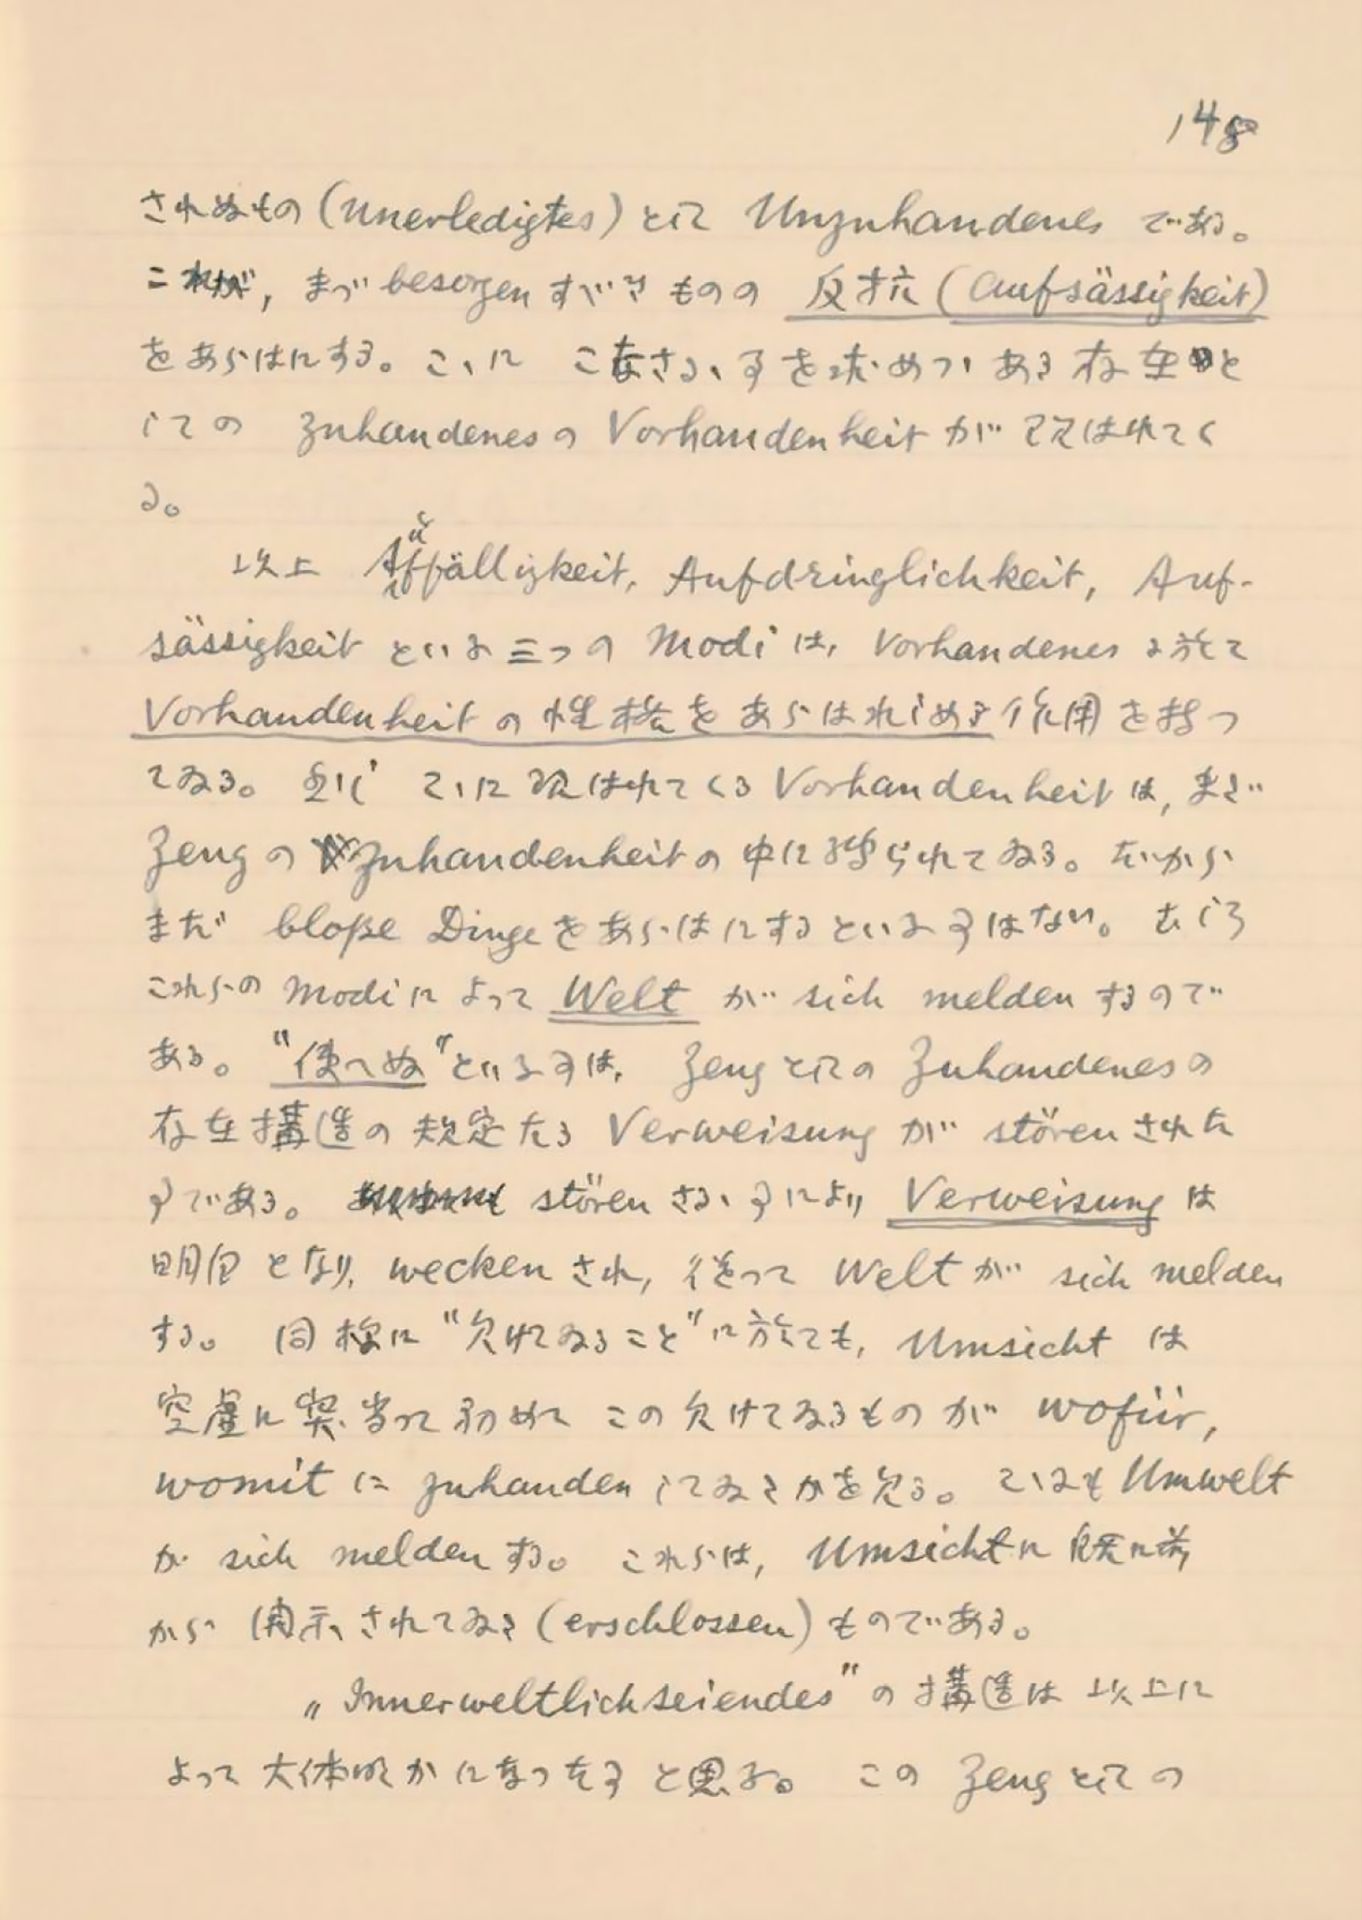 148
されぬもの (Unerledigtes) として Unzuhandenes である。
これが, まづ besorgen すべきものの 反抗 (Aufsässigkeit)
をあらはにする。こゝに こなさるゝ事を求めつゝある存在と
しての Zuhandenes の Vorhandenheit が現はれてく
る。
以上 Auffälligkeit, Aufdringlichkeit, Auf-
sässigkeit といふ三つの Modi は, Vorhandenes に於て
Vorhandenheit の性格をあらはれしめる作用を持つ
てゐる。但し こゝに現はれてくる Vorhandenheit は, まだ
Zeug の Zuhandenheit の中に縛られてゐる。だから
まだ bloße Dinge をあらはにするといふ事はない。むしろ
これらの Modi によって Welt が sich melden するので
ある。"使へぬ"といふ事は, Zeug としての Zuhandenes の
存在構造の規定たる Verweisung が stören された
事である。 stören さるゝ事により Verweisung は
明白となり, wecken され, 従って Welt が sich melden
する。 同様に "欠けてゐること" に於ても, Umsicht は
空虚に突当って初めて この欠けてゐるものが wofür,
womit に zuhanden してゐるかを見る。こゝにも Umwelt
が sich melden する。 これらは, Umsicht に既に前
から開示されてゐる (erschlossen) ものである。
„Innerweltlichseiendes" の構造は以上に
よって大体明かになった事と思ふ。 この Zeug としての